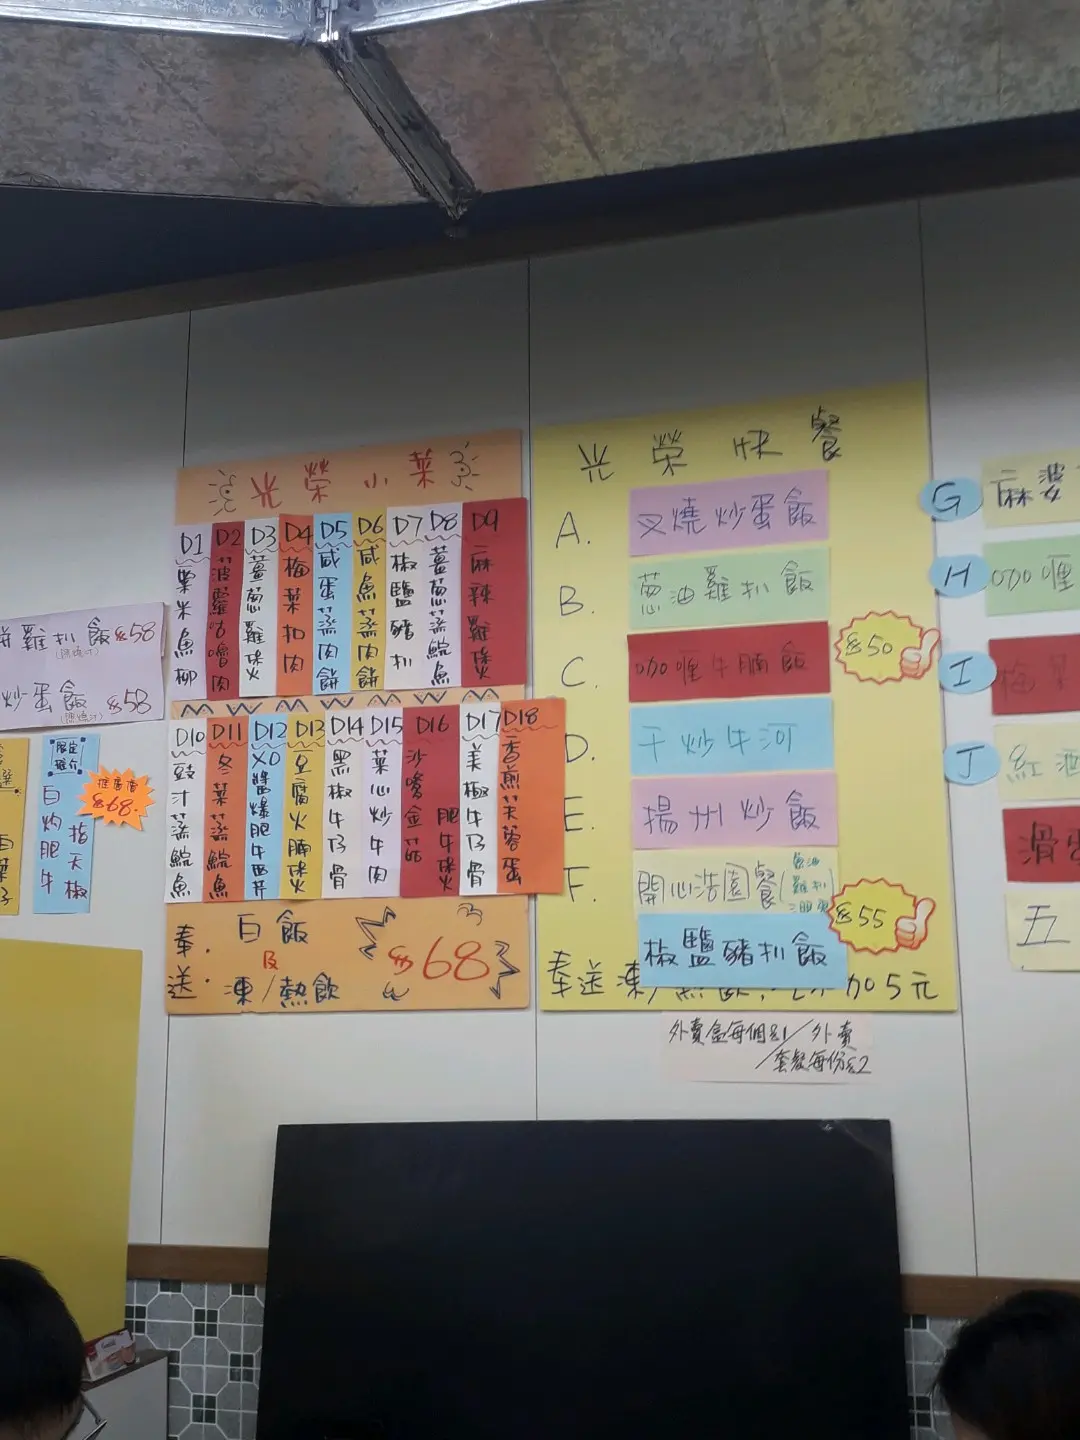 光榮小菜
D1 粟米魚柳
D2 菠蘿咕嚕肉
D3 薑葱雞煲
D4 梅菜扣肉
D5 咸蛋蒸肉餅
D6 咸魚蒸肉餅
D7 椒鹽豬扒
D8 薑葱蒸鯇魚
D9 麻辣雞煲
D10 豉汁蒸鯇魚
D11 冬菜蒸鯇魚
D12 XO醬爆肥牛西芹
D13 豆腐火腩煲
D14 黑椒牛仔骨
D15 菜心炒牛肉
D16 沙嗲金菇肥牛煲
D17 美極牛仔骨
D18 香煎芙蓉蛋
奉送: 白飯及凍/熱飲
$68
光榮快餐
A. 叉燒炒蛋飯
B. 葱油雞扒飯
C. 咖喱牛腩飯
$50
D. 干炒牛河
E. 揚州炒飯
F. 開心浩園餐
椒鹽豬扒飯
$55
奉送凍/熱飲 加5元
外賣盒每個$1/外賣
套餐每份$2
雞扒飯$58
炒蛋飯 $58
限定
推介
白灼肥牛
指天椒
$68
G 麻婆
H 咖喱
I 梅菜
J 紅酒
滑蛋
五